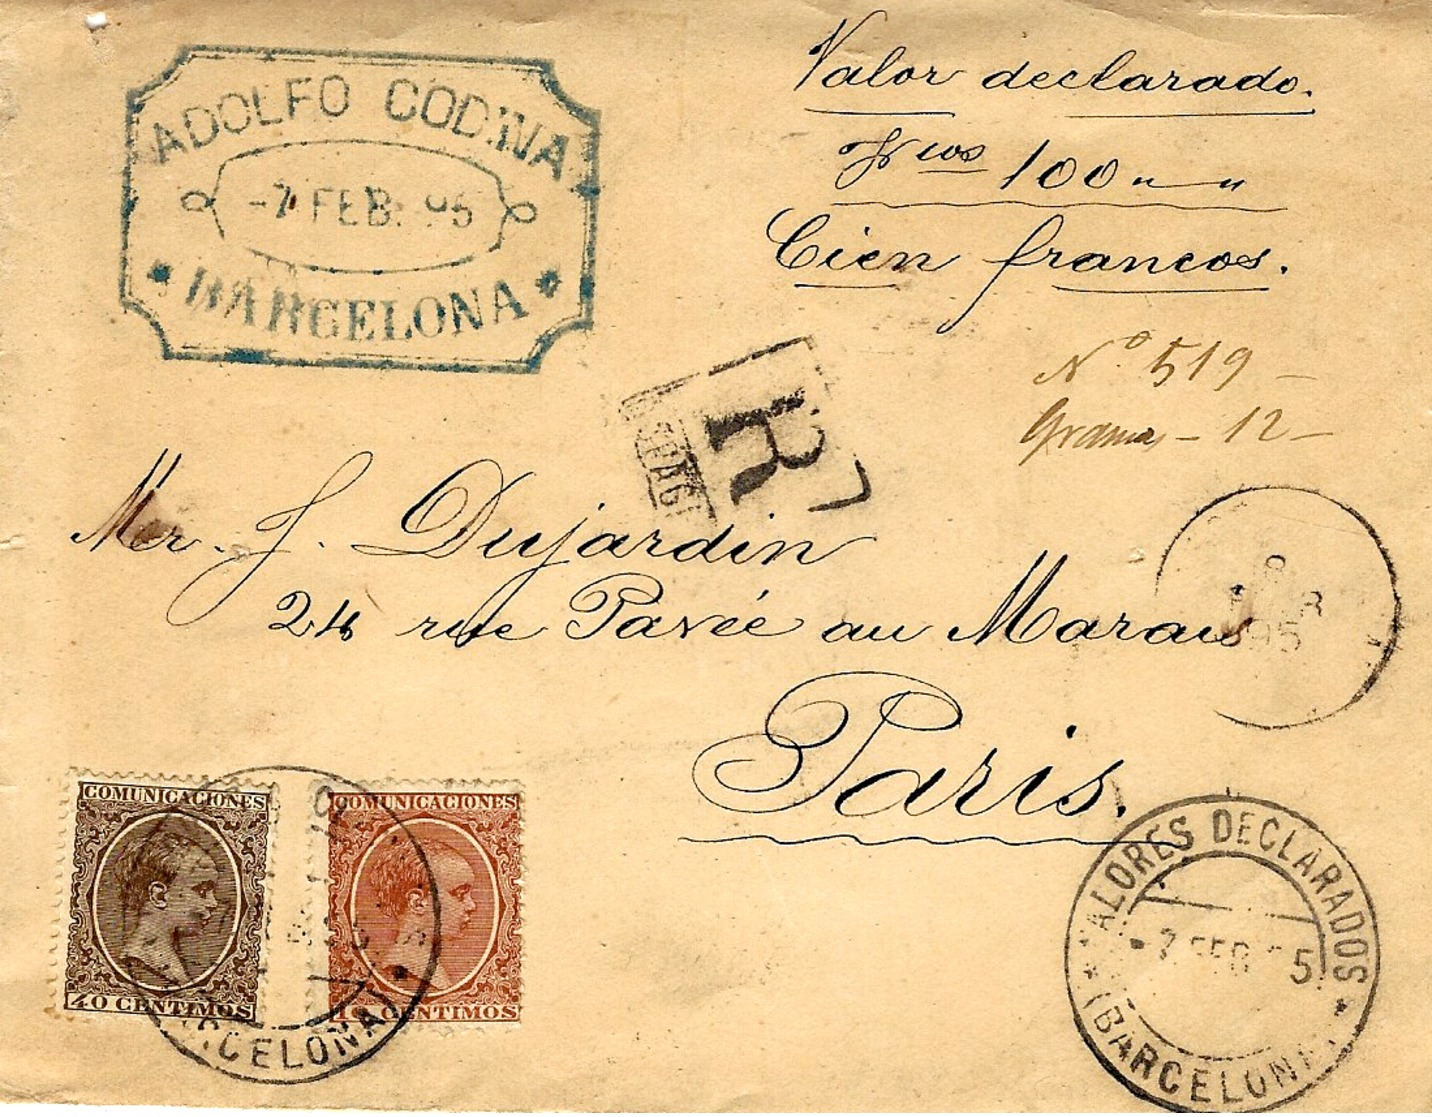 ADOLFO CODINA
-7 FEB. 95
BARCELONA
Valor declarado.
Fcos 100 " — "
Cien francos.
Nº 519 —
Gramos — 12 —
R
ESPAG
Mer. J. Dujardin
24 rue Pavée au Marais
Paris.
8
95
COMUNICACIONES
40 CENTIMOS
COMUNICACIONES
10 CENTIMOS
BARCELONA
VALORES DECLARADOS
7 FEB 95
(BARCELONA)